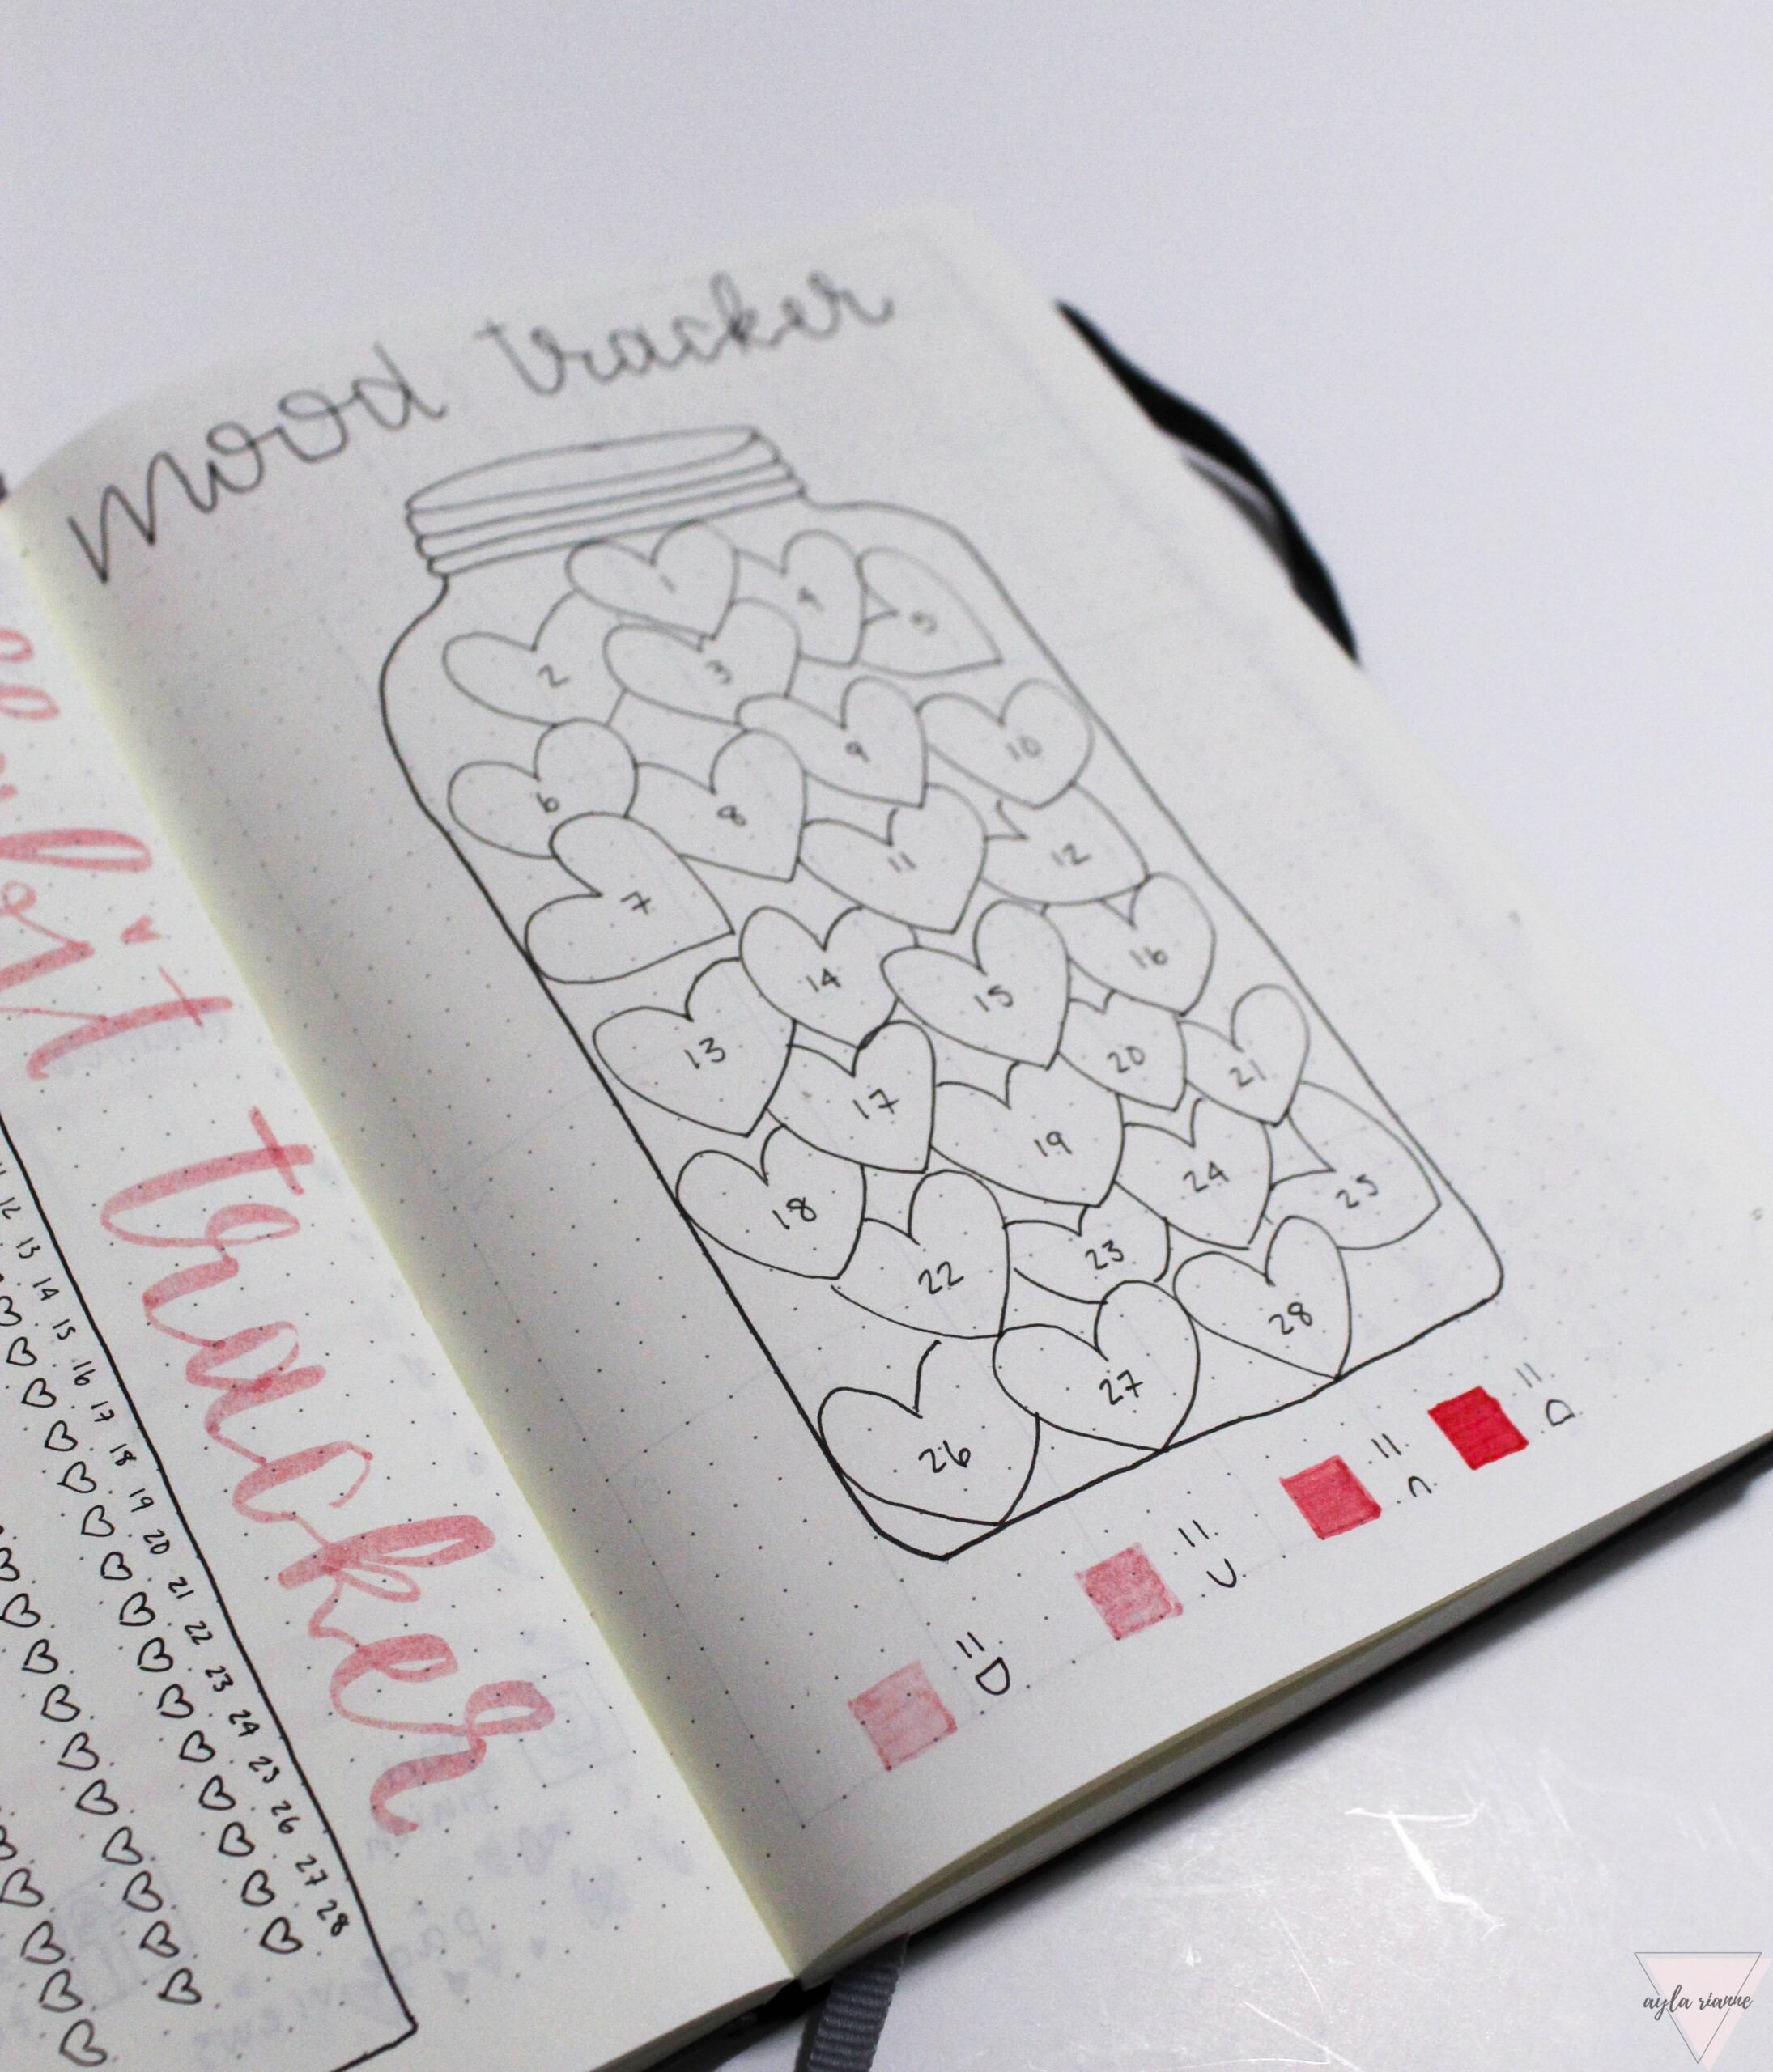 mood tracker
1
4
5
2
3
9
10
6
8
11
12
7
14
15
16
13
17
20
21
19
18
24
25
22
23
28
27
26
tracker
12
13
14
15
16
17
18
19
20
21
22
23
24
25
26
27
28
ayla rianne